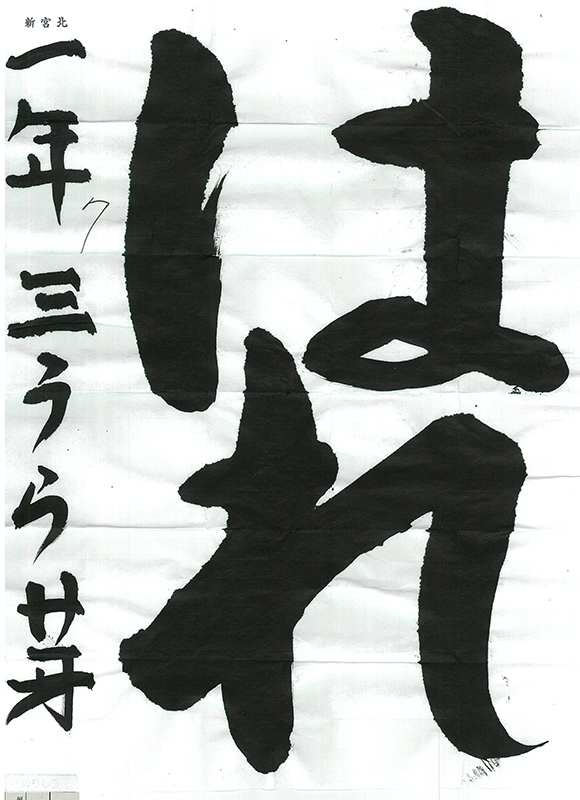 はれ
新宮北
一年 三うら 芽